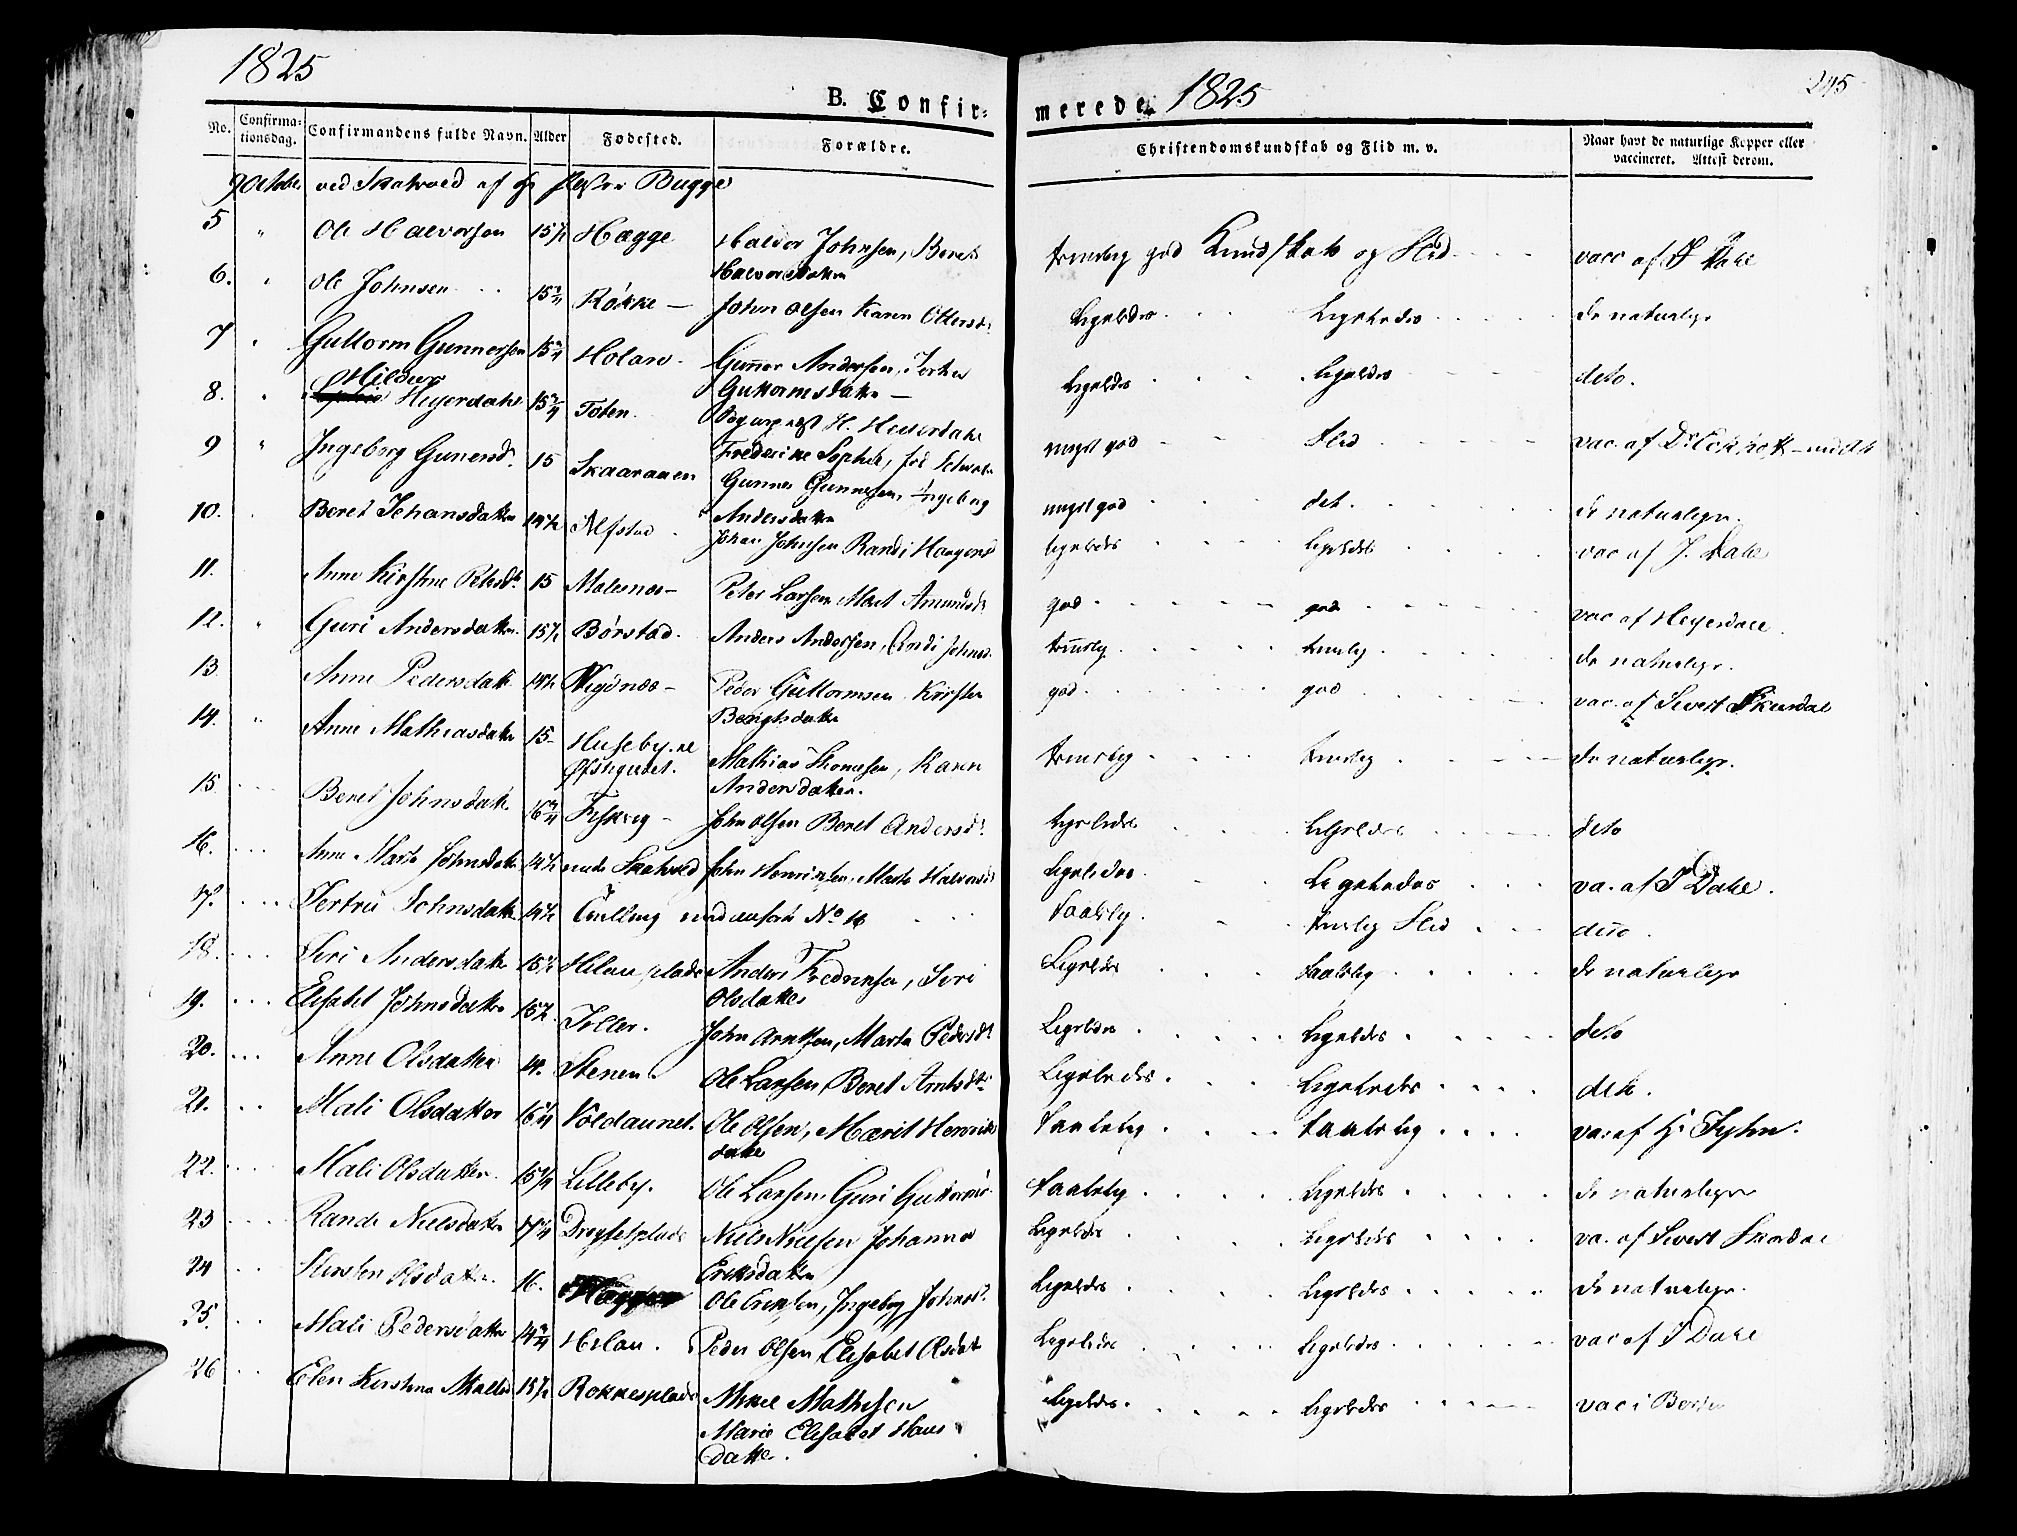 1825
B. Confir=
merede 1825
245
No. Confirma=tionsdag. Confirmandens fulde Navn. Alder Fødested. Forældre. Christendomskundskab og Flid m. v. Naar havt de naturlige Kopper eller vaccineret. Attest derom.
9 October ved Skatvold af Hr Bugge
5 " Ole Halvorsen 15½ Hægge Halvor Johnsen, Beret Halvorsdatter temelig god Kundskab og Flid vacc af J Dahl
6. " Ole Johnsen 15¾ Røkke John Olsen Karen Ottersd. Ligeledes Ligeledes de naturlige
7 " Guttorm Gunnersen 15¾ Holan Gunner Andersen, Guttormsdatter Ligeledes Ligeledes deto.
8. " Hildur Heyerdahl 15¾ Toten H. Heierdahl Frederike Sophie, meget god Flid vac. af Dr
9 " Ingeborg Gunersd. 15 Skaaraaen Gunner Gunnersen, Ingeborg Andersdatter meget god det. de naturlige.
10. Beret Johansdatter 14½ Alstad Johan Johnsen Randi Haagensd ligeledes ligeledes vac af J. Dahl
11. Anne Kirstine Petersd. 15 Malesnes Peter Larsen Marit Amundsd. god god vac af Heyerdahl
12. " Guri Andersdatter. 15½ Børstad. Anders Andersen, Johnsd. temelig temelig de naturlige.
13 Anne Pedersdatt 14½ Vigdnes Peder Guttormsen Kirsten Bengtsdatter god god vac. af Sivert Skurdal
14. " Anne Mathiasdatter 15 Huseby Mathias Thomesen, Karen Andersdatter. temelig temelig de naturlige.
15 Beret Johnsdatt 16¾ Fiskvig John Olsen Beret Andersd. ligeledes ligeledes deto
16. Anne Marta Johnsdatter 14½ nedr Skatvold John Henriksen, Marta Halvorsd Ligeledes Ligeledes va. af J Dahl.
17. Gertru Johnsdatter 14½ Tvilling med ansøn No 16 taalelig temelig Flid deto.
18. Siri Andersdatter 15½ Helan plads Anders Fredriksen, Siri Olsdatter Ligeledes taalelig de naturlige
19. Elisabet Johnsdatter 15½ Teller. John Arntsen, Marta Pedersdt Ligeledes Ligeledes deto
20. Anne Olsdatter 14. Stenen. Ole Larsen Beret Arntsdt. Ligeledes Ligeledes deto.
21. Mali Olsdatter 16¼ Voldaunet. Ole Olsen, Marit Henriksdatter taalelig taalelig vac. af H. Tyhn.
22. Mali Olsdatter. 15¼ Lilleby. Ole Larsen, Guri Guttormsd. taalelig Ligeledes de naturlige
23 Randi Nielsdatter 17¼ Dreyfetplads Niels Nielsen Johanna Eriksdatter Ligeledes Ligeledes va. af Sivert Skurdal
24 Kirsten Olsdatter. 16. Ole Eriksen, Ingeborg Johnsd. Ligeledes Ligeledes de naturlige.
25. Mali Pedersdatter 14¾ Helan. Peder Olsen, Elisabet Olsdat Ligeledes Ligeledes vac af J Dahl
26 Elen Kirstina 15½ Røkkesplads Mikel Mathisen Marie Elisabet Hansdatter. Ligeledes. Ligeledes vac i